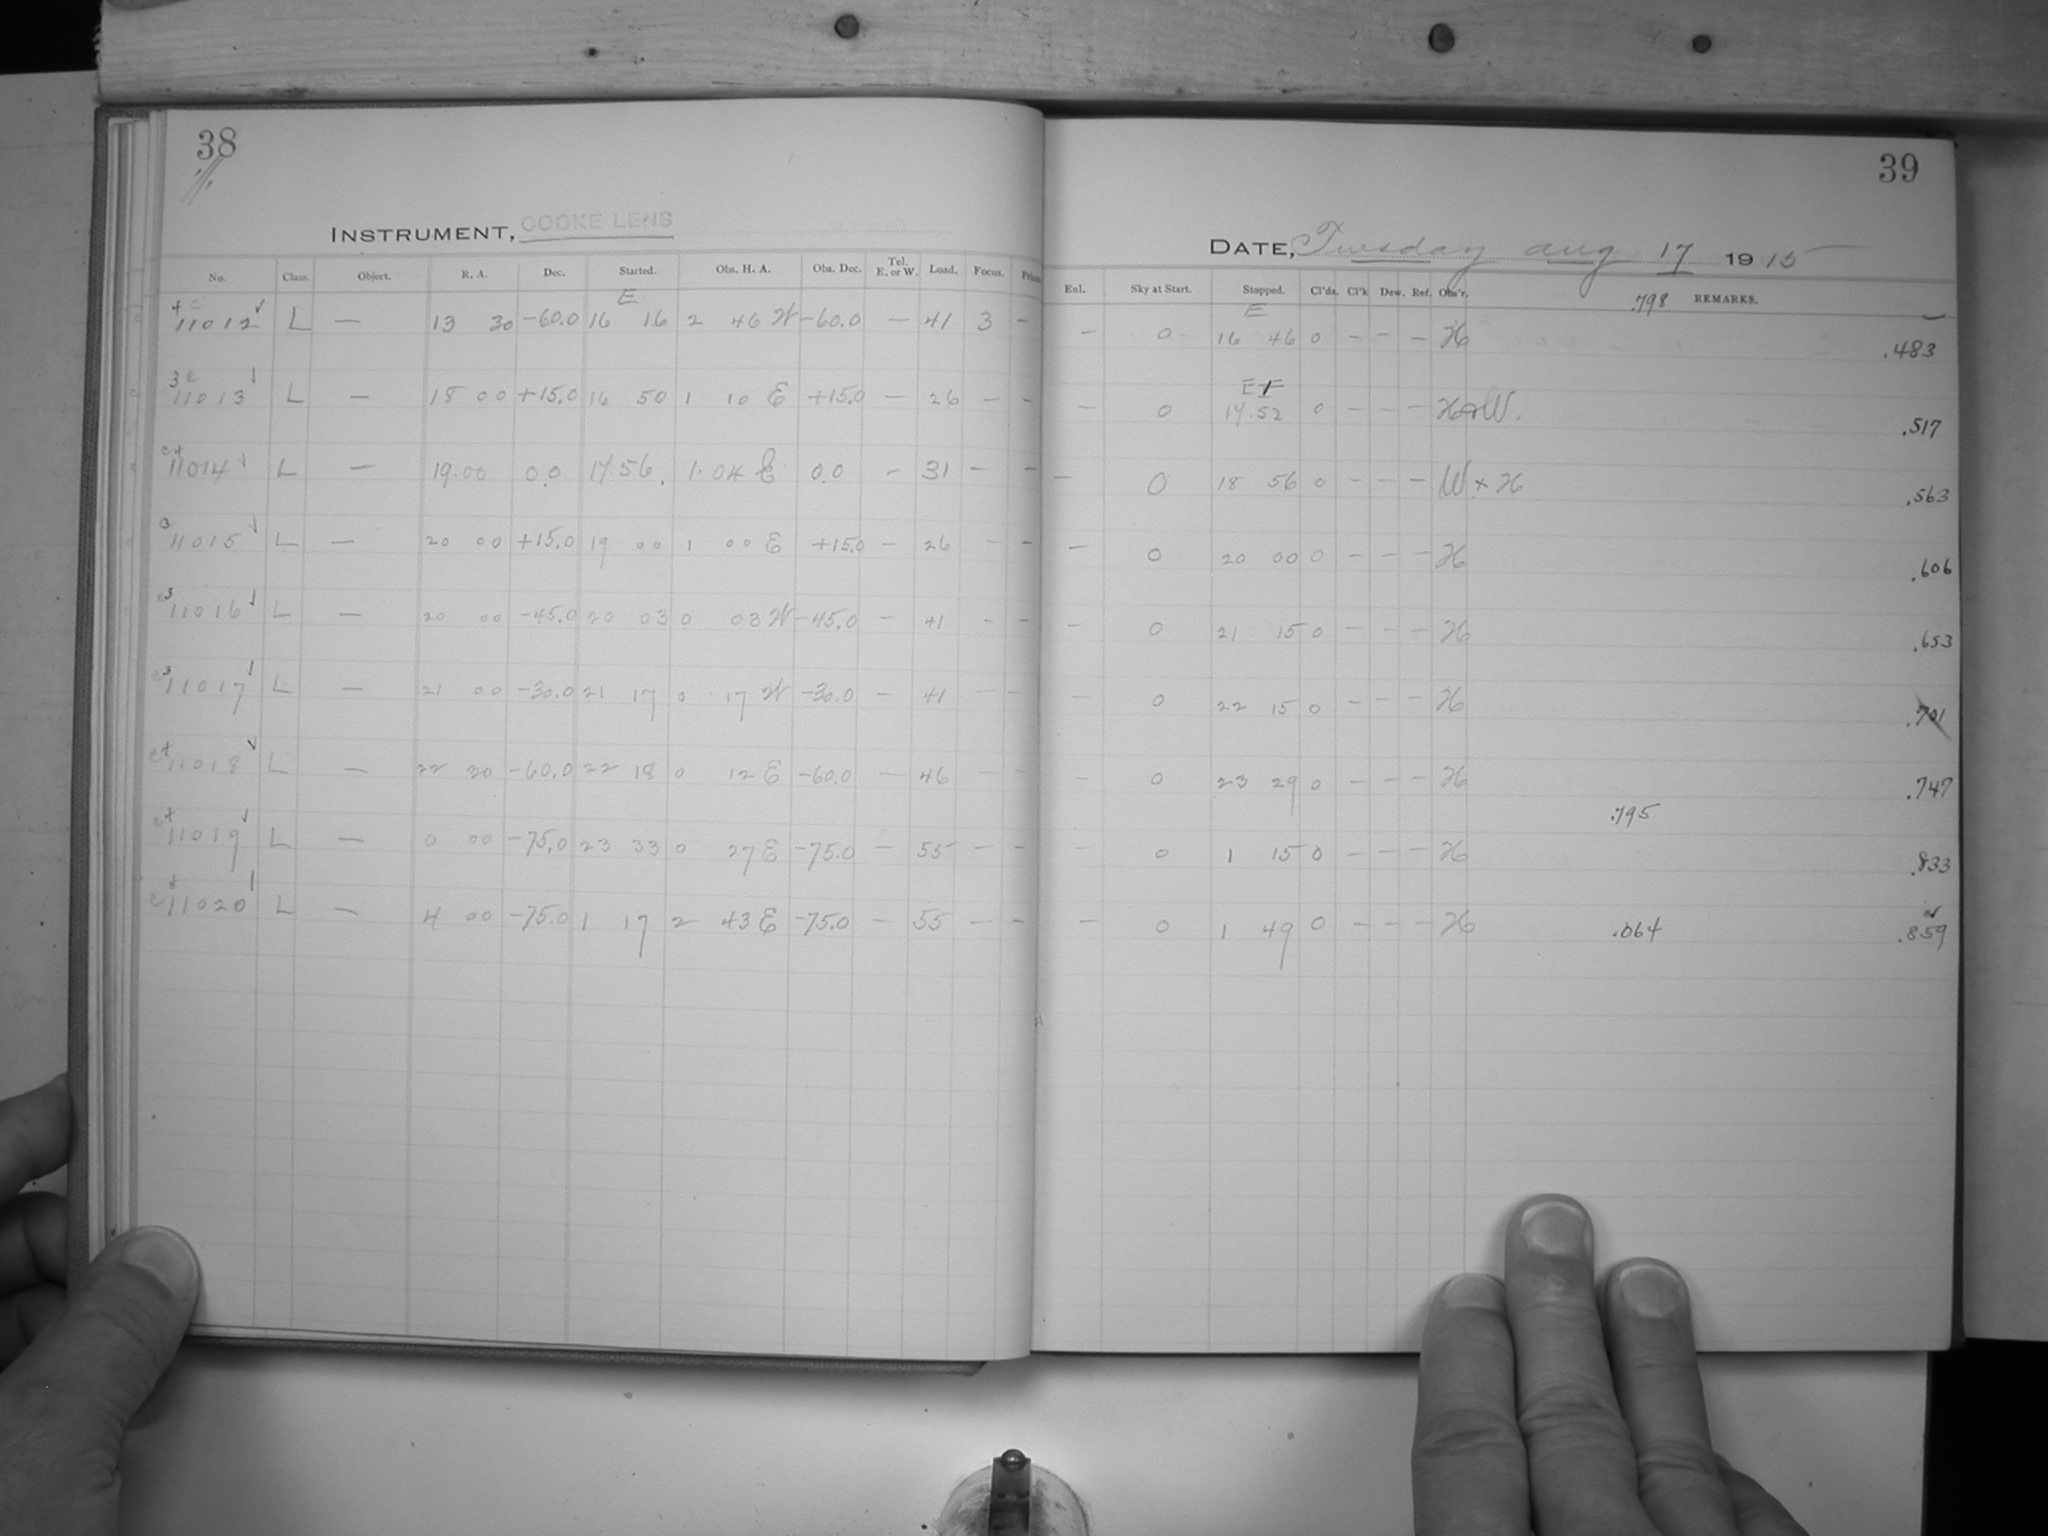 38
INSTRUMENT, COOKE LENS
No. Class. Object. R. A. Dec. Started. Obs. H. A. Obs. Dec. Tel. E. or W. Load. Focus.
E
11012 L — 13 30 -60.0 16 16 2 46 W -60.0 — 41 3 -
11013 L — 18 00 +15.0 16 50 1 10 E +15.0 — 26 - -
11014 L — 19.00 0.0 17.56 1.04 E 0.0 - 31 - -
11015 L — 20 00 +15.0 19 00 1 00 E +15.0 — 26 - -
11016 L — 20 00 -45.0 20 03 0 03 W -45.0 — 41 - -
11017 L — 21 00 -30.0 21 17 0 17 W -30.0 — 41 - -
11018 L — 22 30 -60.0 22 18 0 12 E -60.0 — 46 - -
11019 L — 0 00 -75.0 23 33 0 27 E -75.0 — 55 - -
11020 L — 4 00 -75.0 1 17 2 43 E -75.0 — 55 - -
39
DATE, Tuesday Aug 17 1915
Enl. Sky at Start. Stopped. Cl'ds. Cl'k Dew. Ref. Obs'r. .798 REMARKS.
E
- 0 16 46 0 - - - H .483
E F
- 0 17.52 0 - - - H W. .517
- 0 18 56 0 - - - W + H .563
- 0 20 00 0 - - - H .606
- 0 21 15 0 - - - H .653
- 0 22 15 0 - - - H .701
- 0 23 29 0 - - - H .747
.795
- 0 1 15 0 - - - H .833
- 0 1 49 0 - - - H .064 .859